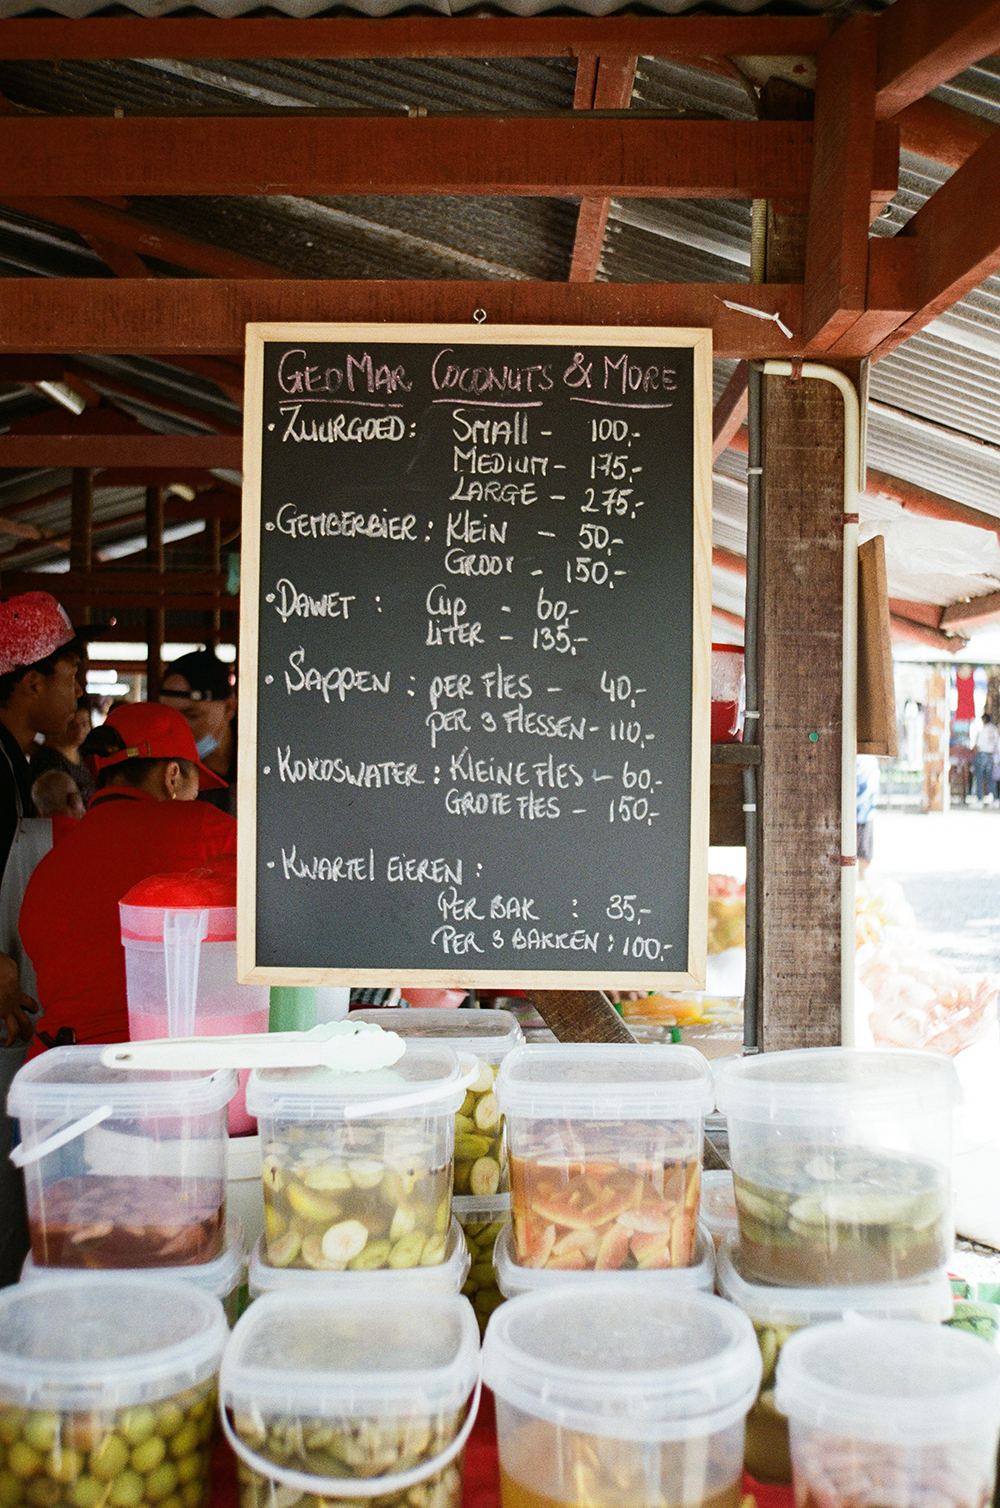 GeoMar Coconuts & More
• Zuurgoed: Small - 100,-
Medium - 175,-
Large - 275,-
• Gemberbier: Klein - 50,-
Groot - 150,-
• Dawet : Cup - 60,-
Liter - 135,-
• Sappen : per fles - 40,-
per 3 flessen - 110,-
• Kokoswater : Kleine fles - 60,-
Grote fles - 150,-
• Kwartel eieren :
Per bak : 35,-
Per 3 bakken : 100,-